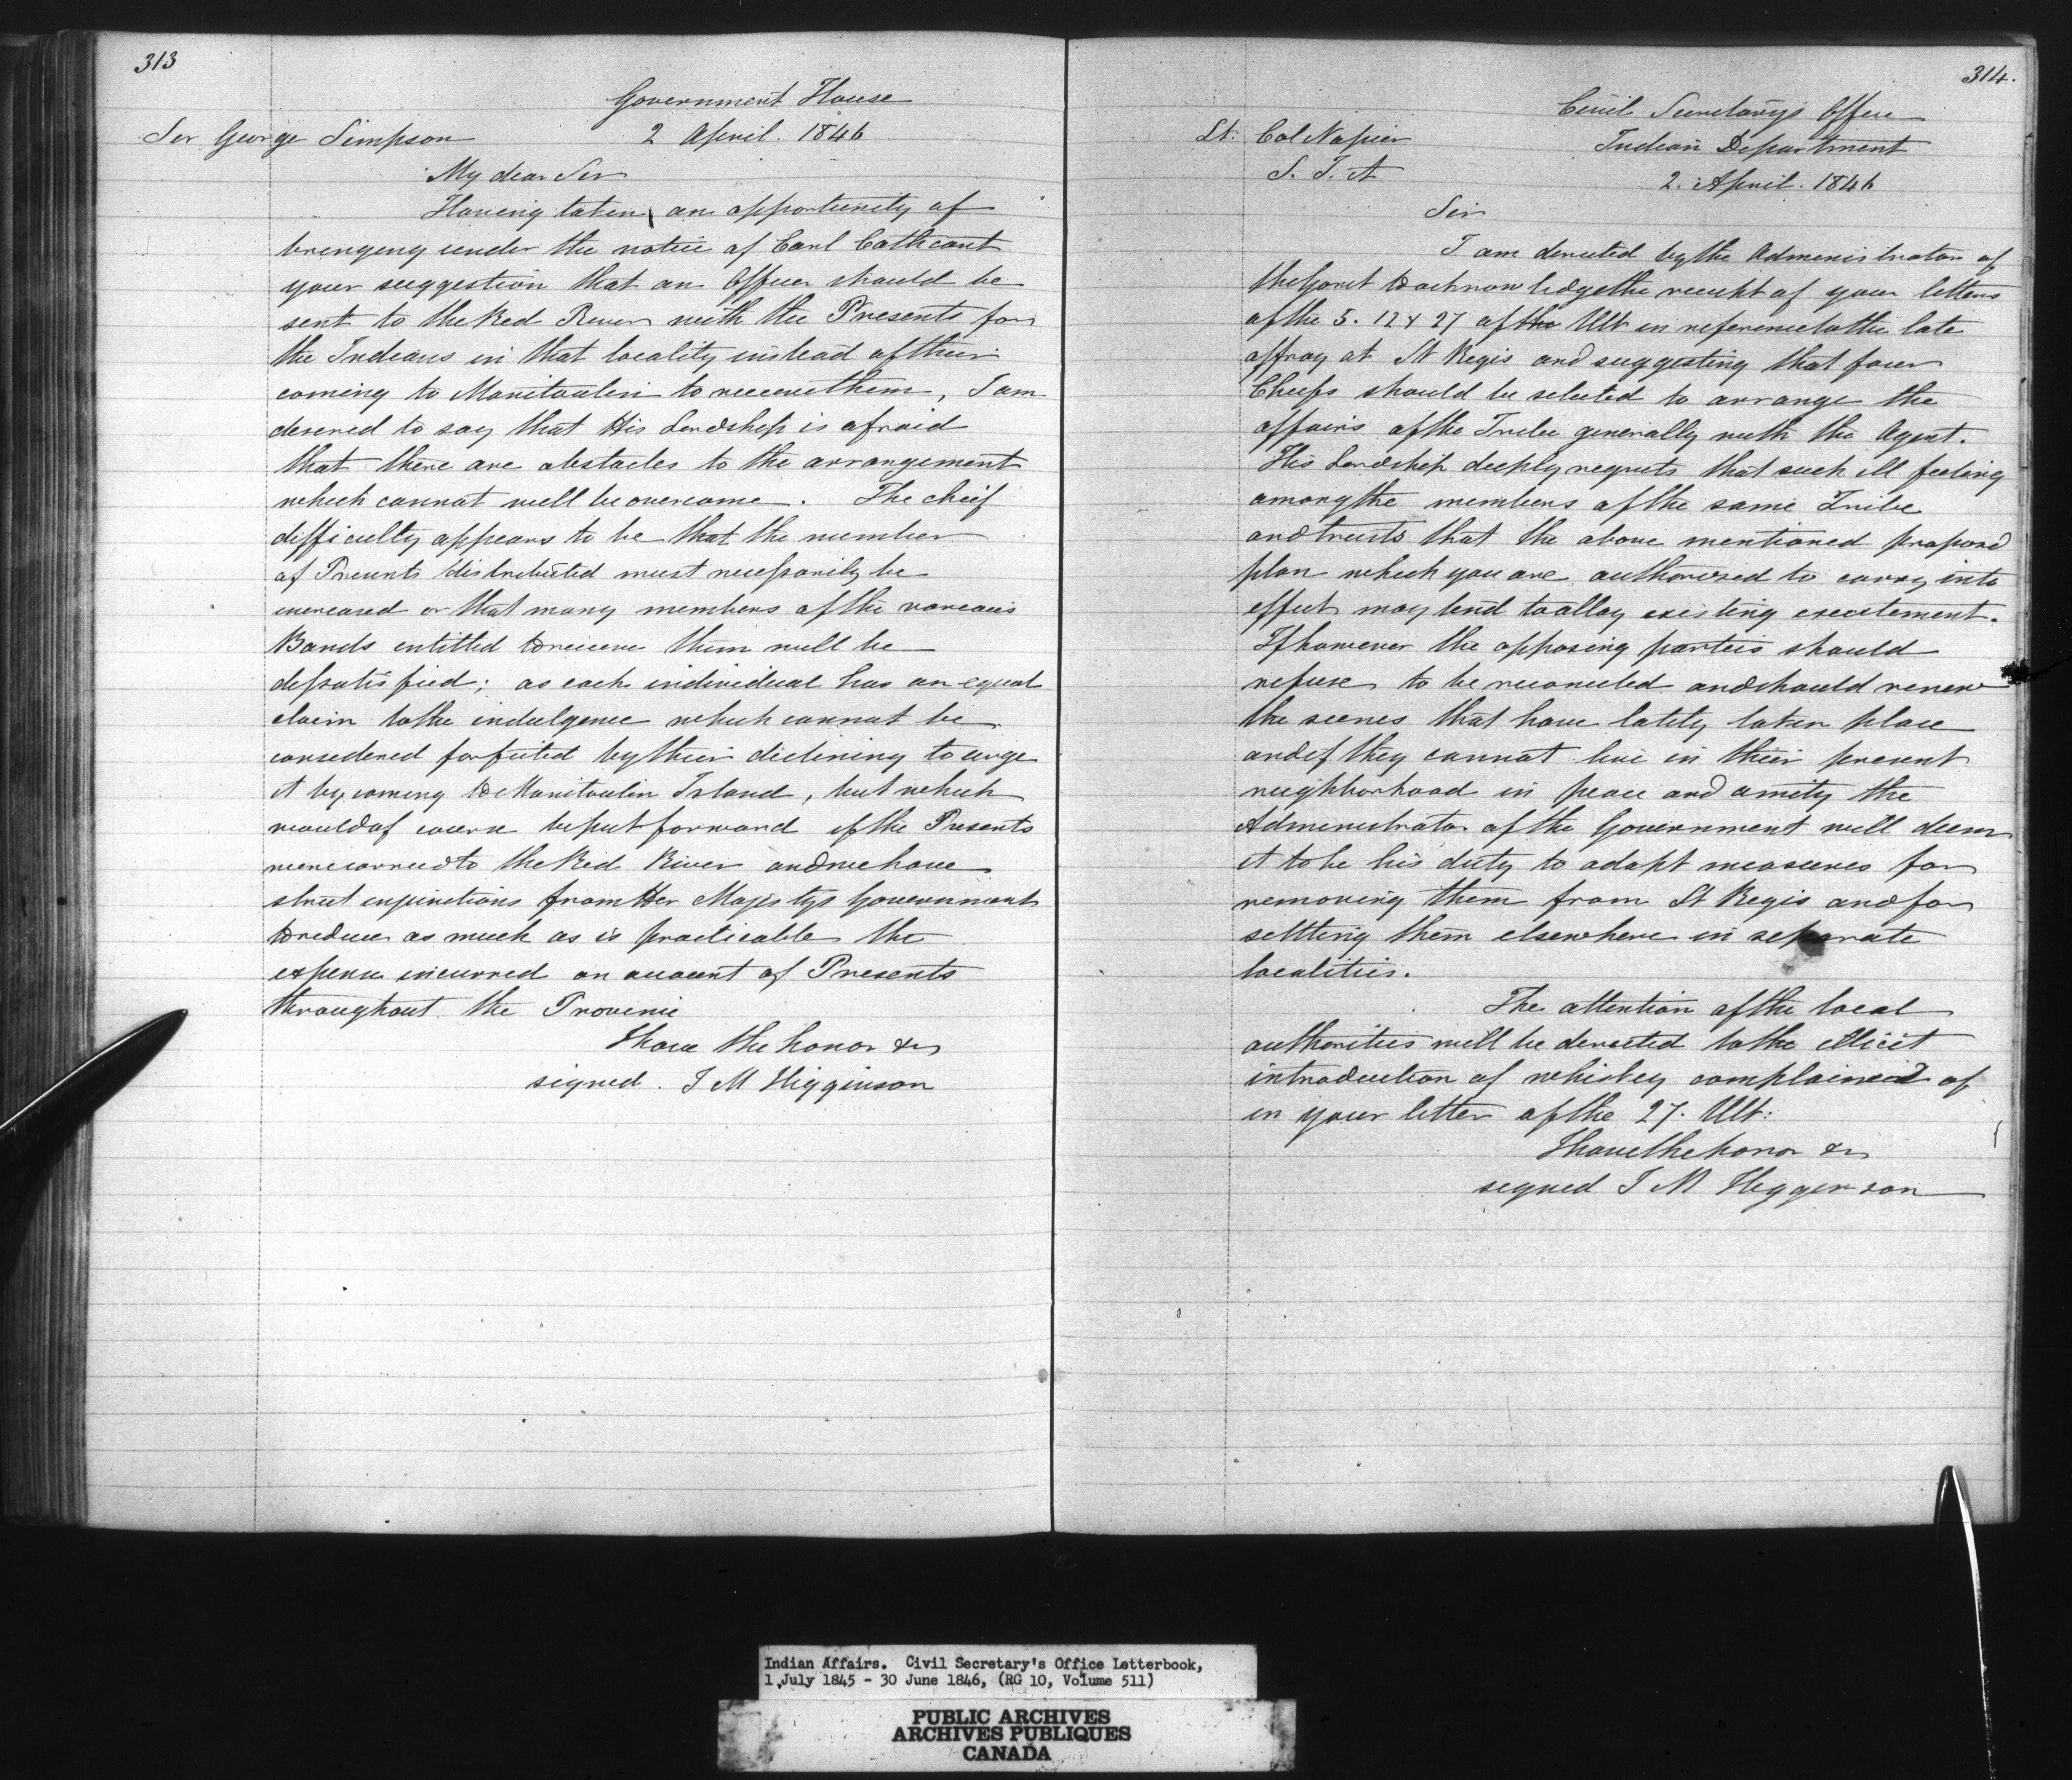 313
Government House
Sir George Simpson 2 April. 1846
My dear Sir
Having taken an opportunity of
bringing under the notice of Earl Cathcart
your suggestion that an Officer should be
sent to the Red River with the Presents for
the Indians in that locality instead of their
coming to Manitoulin to receive them, I am
desired to say that His Lordship is afraid
that there are obstacles to the arrangement
which cannot well be overcome. The cheif
difficulty appears to be that the number
of Presents distributed must necessarily be
increased or that many members of the various
Bands entitled to receive them will be
dissatisfied; as each individual has an equal
claim to the indulgence which cannot be
considered forfeited by their declining to urge
it by coming to Manitoulin Island, but which
would of course be put forward if the Presents
were carried to the Red River and we have
strict injunctions from Her Majestys Government
to reduce as much as is practicable the
expense incurred on account of Presents
throughout the Province
I have the honor &c
signed. J M Higginson
314.
Civil Secretarys Office
Lt: Col Napier Indian Department
S. I. A 2. April. 1846
Sir
I am directed by the Administrator of
the Govnt to acknowledge the receipt of your letters
of the 5. 12 & 27 of the Ult in reference to the late
affray at St Regis and suggesting that four
Cheifs should be selected to arrange the
affairs of the Tribe generally with the Agent.
His Lordship deeply regrets that such ill feeling
among the members of the same Tribe
and trusts that the above mentioned proposed
plan which you are authorised to carry into
effect may tend to allay existing excitement.
If however the opposing parties should
refuse to be reconciled and should renew
the scenes that have lately taken place
and if they cannot live in their present
neighborhood in peace and amity the
Administrator of the Government will deem
it to be his duty to adopt measures for
removing them from St Regis and for
settling them elsewhere in separate
localities.
The attention of the local
authorities will be directed to the illicit
introduction of whiskey complained of
in your letter of the 27. Ult:
I have the honor &c
signed J M Higginson
Indian Affairs. Civil Secretary's Office Letterbook,
1 July 1845 - 30 June 1846, (RG 10, Volume 511)
PUBLIC ARCHIVES
ARCHIVES PUBLIQUES
CANADA